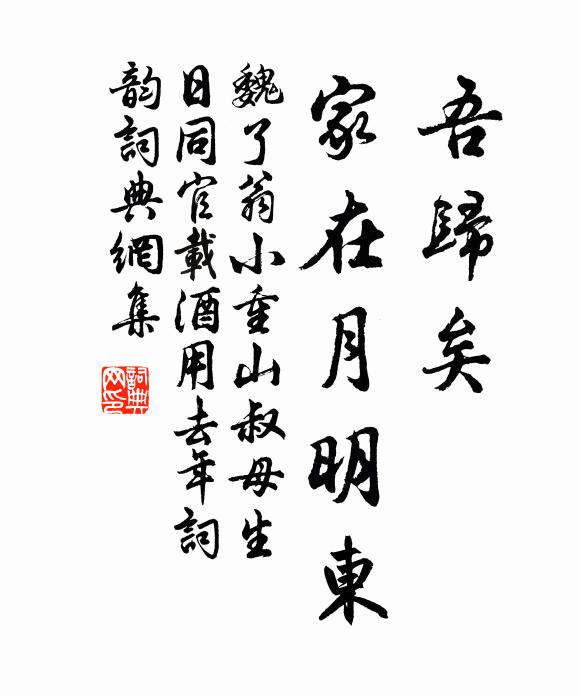 吾歸矣
家在月明東
魏了翁小重山叔母生
日同官載酒用去年詞
韵詞典網集
詞典
网印